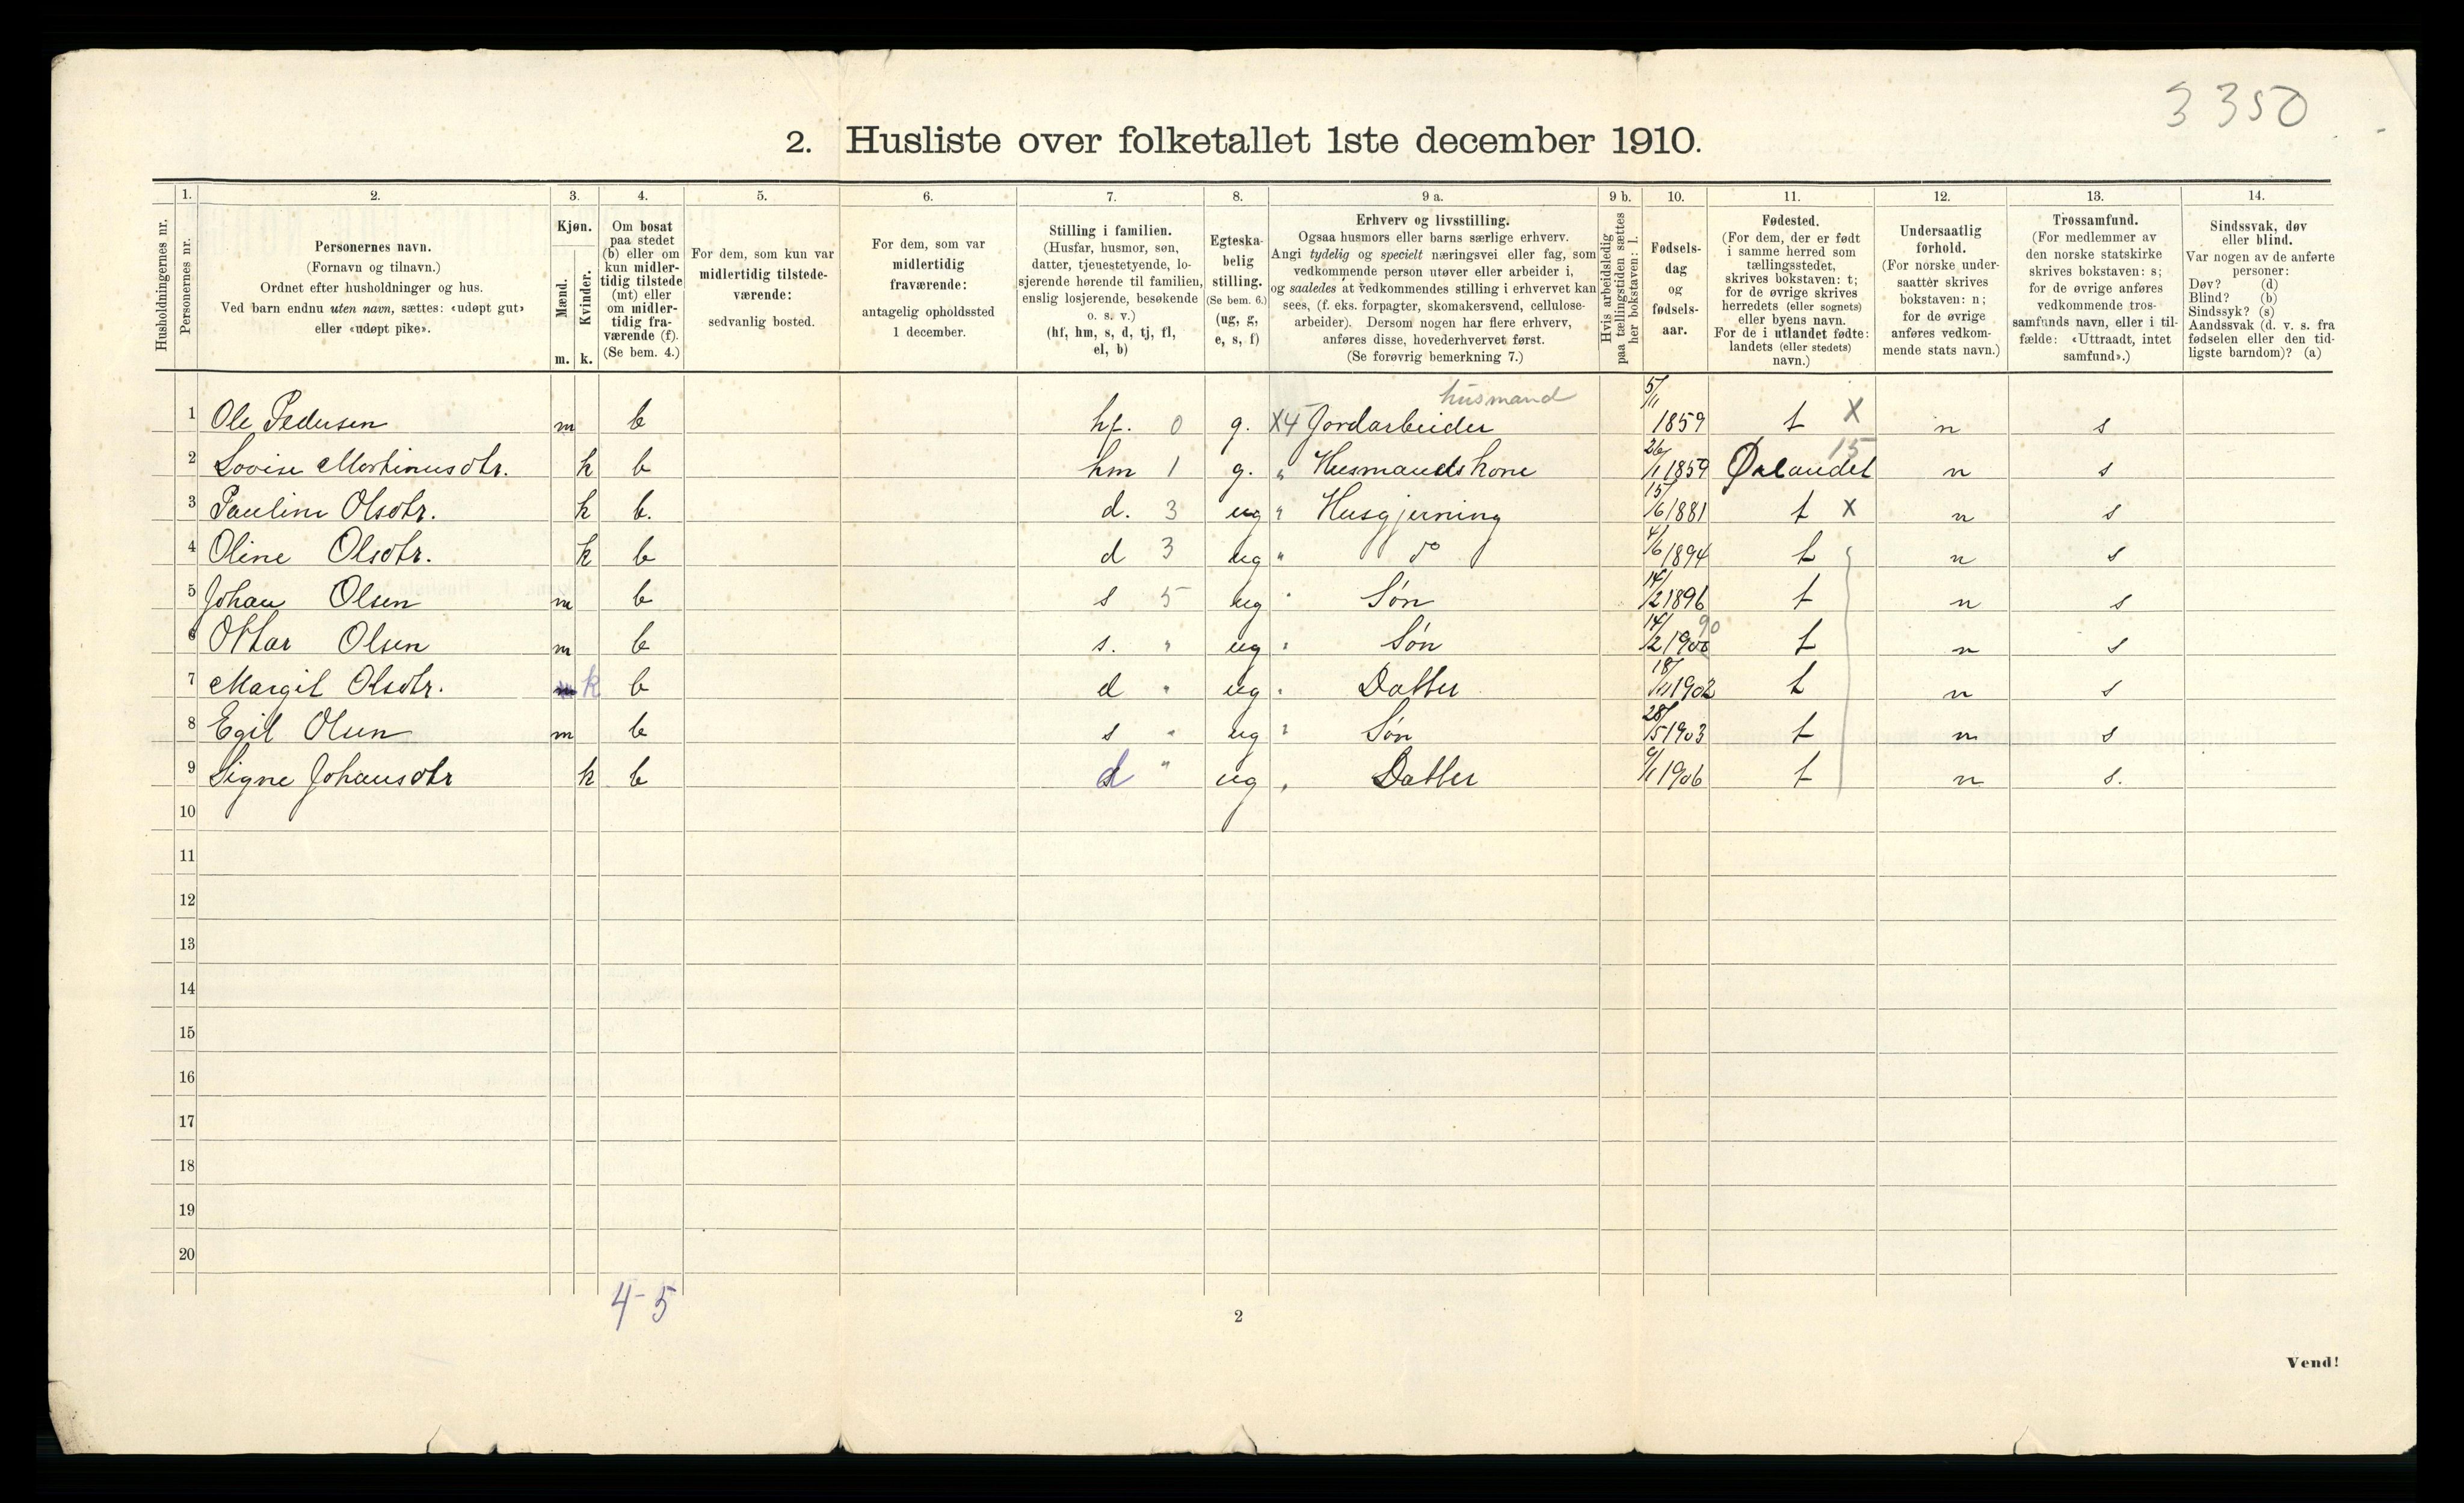 3350
2. Husliste over folketallet 1ste december 1910.
Husholdningernes nr.
1. Personernes nr.
2. Personernes navn. (Fornavn og tilnavn.) Ordnet efter husholdninger og hus. Ved barn endnu uten navn, sættes: «udøpt gut» eller «udøpt pike».
3. Kjøn. Mænd. m. Kvinder. k.
4. Om bosat paa stedet (b) eller om kun midlertidig tilstede (mt) eller om midlertidig fraværende (f). (Se bem. 4.)
5. For dem, som kun var midlertidig tilstedeværende: sedvanlig bosted.
6. For dem, som var midlertidig fraværende: antagelig opholdssted 1 december.
7. Stilling i familien. (Husfar, husmor, søn, datter, tjenestetyende, losjerende hørende til familien, enslig losjerende, besøkende o. s. v.) (hf, hm, s, d, tj, fl, el, b)
8. Egteskabelig stilling. (Se bem. 6.) (ug, g, e, s, f)
9 a. Erhverv og livsstilling. Ogsaa husmors eller barns særlige erhverv. Angi tydelig og specielt næringsvei eller fag, som vedkommende person utøver eller arbeider i, og saaledes at vedkommendes stilling i erhvervet kan sees, (f. eks. forpagter, skomakersvend, cellulosearbeider). Dersom nogen har flere erhverv, anføres disse, hovederhvervet først. (Se forøvrig bemerkning 7.)
9 b. Hvis arbeidsledig paa tællingstiden sættes her bokstaven: l.
10. Fødselsdag og fødselsaar.
11. Fødested. (For dem, der er født i samme herred som tællingsstedet, skrives bokstaven: t; for de øvrige skrives herredets (eller sognets) eller byens navn. For de i utlandet fødte: landets (eller stedets) navn.)
12. Undersaatlig forhold. (For norske undersaatter skrives bokstaven: n; for de øvrige anføres vedkommende stats navn.)
13. Trossamfund. (For medlemmer av den norske statskirke skrives bokstaven: s; for de øvrige anføres vedkommende trossamfunds navn, eller i tilfælde: «Uttraadt, intet samfund».)
14. Sindssvak, døv eller blind. Var nogen av de anførte personer: Døv? (d) Blind? (b) Sindssyk? (s) Aandssvak (d. v. s. fra fødselen eller den tidligste barndom)? (a)
husmand
1 Ole Pedersen m b hf. 0 g. X4 Jordarbeider 5/11 1859 t X n s
2 Lovise Martinusdtr. k b hm 1 g. " Husmandskone 26/1 1859 Ørlandet 15 n s
3 Pauline Olsdtr. k b. d. 3 ug " Husgjerning 15/6 1881 t X n s
4 Oline Olsdtr. k b d 3 ug " do 4/6 1894 t n s
5 Johan Olsen m b s 5 ug " Søn 14/2 1896 t n s
6 Ottar Olsen m b s. " ug " Søn 14/2 1900 90 t n s
7 Margit Olsdtr. k b d " ug " Datter 18/11 1902 t n s
8 Egil Olsen m b s " ug " Søn 28/5 1903 t n s
9 Signe Johansdtr k b d " ug " Datter 9/1 1906 t n s.
10
11
12
13
14
15
16
17
18
19
20
4-5
2
Vend!